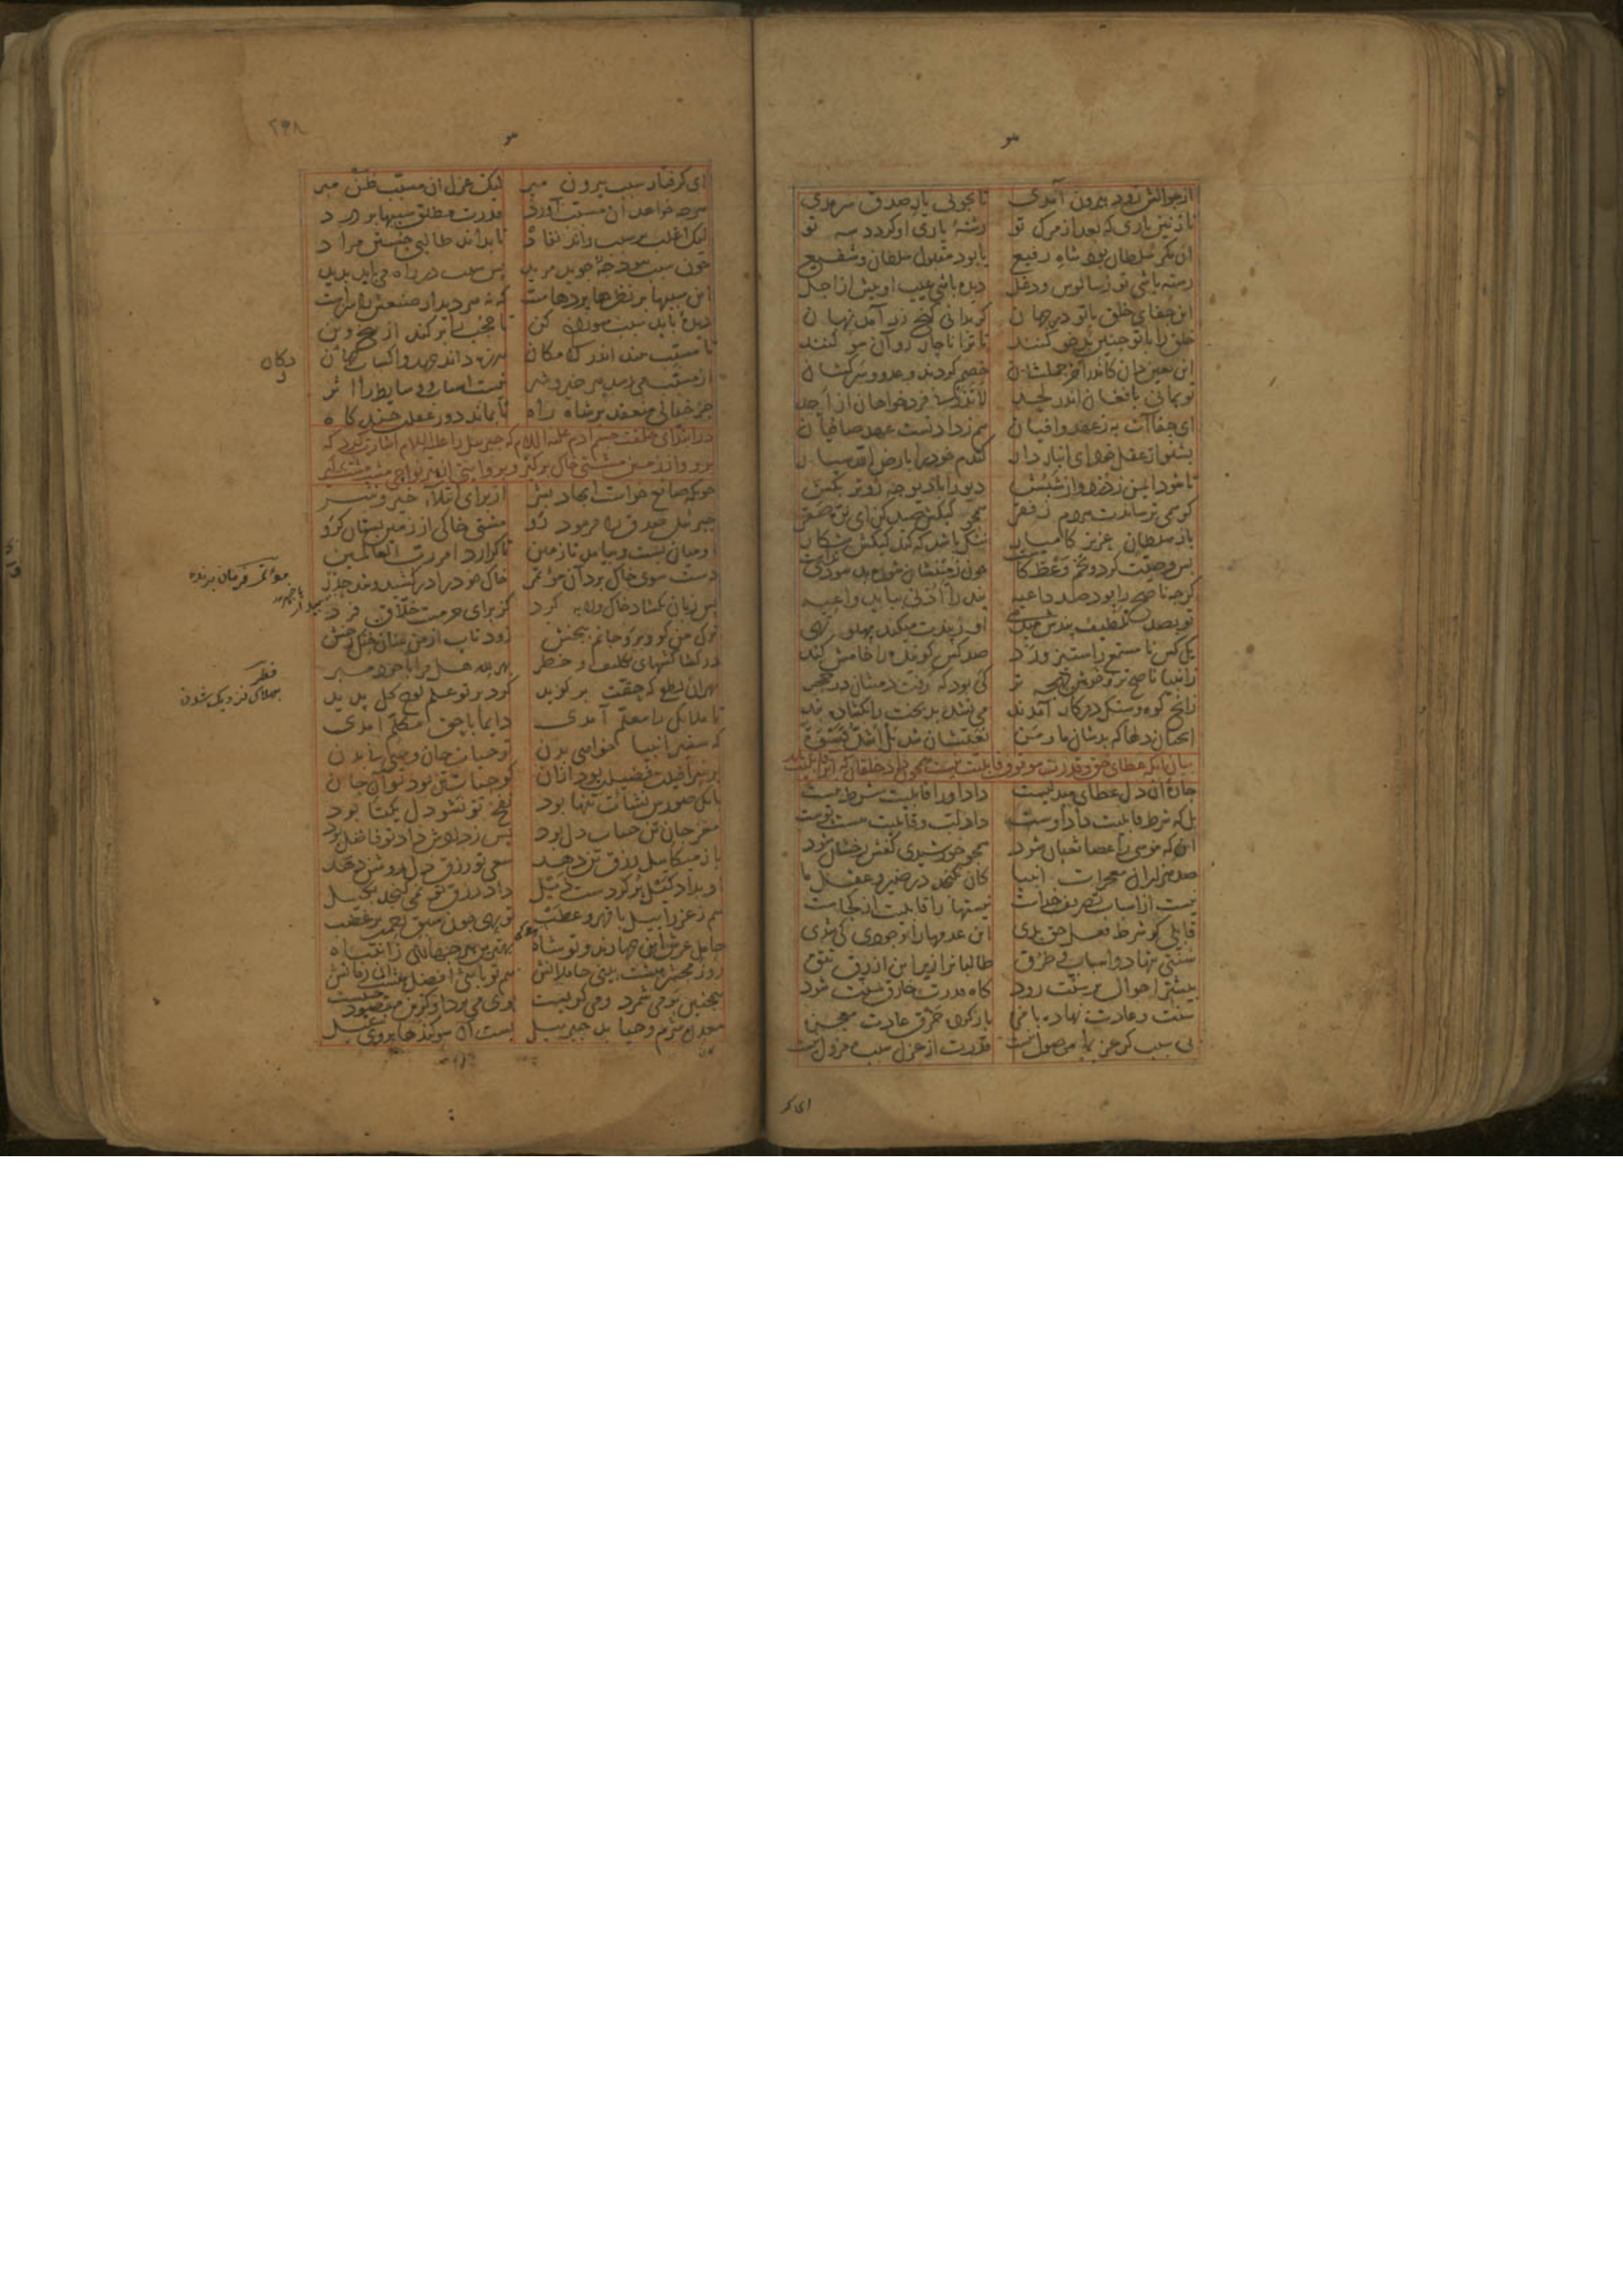 از جوالش زود بیرون آمدی تا بجوئی یار صدق سرمدی
نازنین یاری که بعد از مرک تو رشتهٔ یاری او کردد سه تو
آن مکر سلطان بود شاه رفیع یا بود مقبول سلطان و شفیع
رسته باشی تو ز سالوس و دغل دیده باشی عیب او پیش از اجل
این جفای خلق با تو در جهان کر بدانی کنج زر آمد نهان
خلق را با تو چنین بدخو کنند تا ترا ناچار رو آن سو کنند
این یقین دان کاندر آخر جملشان خصم کردند و عدو و سرکشان
تو بمانی با فغان اندر لحد لا تذرنی فرد خواهان از احد
ای جفاات به ز عهد وافیان هم ز داد تست عهد صافیان
بشنو از عقل خود ای انباردار کندم خود را بارض الله سپار
تا شود ایمن ز دزد و از شپش دیو را با دیوچه زوتر بکش
کو همی ترساندت هر دم ز فقر همچو کبکش صید کن ای نره صقر
باز سلطان عزیز کامیار ننک باشد که کند کبکش شکار
بس وصیت کرد و تخم وعظ کاشت چون زمینشان شوره بد سودی نداشت
کرچه ناصح را بود صد داعیه پند را اذنی بباید واعیه
تو بصد تلطیف پندش میدهی او ز پندت میکند پهلو تهی
یک کس نامستمع ز استیز و رد صد کس کوینده را خامش کند
ز انبیا ناصح‌تر و خوش لهجه‌تر کی بود که رفت دمشان در حجر
زانچ کوه و سنک در کار آمدند می‌نشد بدبخت را بکشاده بند
آنچنان دلها که بدشان ما و من نعتشان شد بل اشد قسوة
بیان آنکه عطای حق و قدرت موقوف قابلیت نیست همچون داد خلقان که آنرا قابلیت باید
چارهٔ آن دل عطای مبدلیست داد او را قابلیت شرط نیست
بل که شرط قابلیت داد اوست داد لب و قابلیت هست پوست
این که موسی را عصا ثعبان شود همچو خورشیدی کفش رخشان شود
صد هزاران معجزات انبیا کان نکنجد در ضمیر و عقل ما
نیست از اسباب تصریف خداست نیستها را قابلیت از کجاست
قابلی کر شرط فعل حق بدی این عدمها را وجودی کی شدی
سنتی بنهاد و اسباب و طرق طالبانرا زیر این ازرق تتق
بیشتر احوال بر سنت رود کاه قدرت خارق سنت شود
سنت و عادت نهاده با مزه باز کرده خرق عادت معجزه
بی سبب کر عز بما موصول نیست قدرت از عزل سبب معزول نیست
ای کر
۲۳۸
ای کرفتار سبب بیرون مپر لیک عزل آن مسبب ظن مبر
هرچه خواهد آن مسبب آورد قدرت مطلق سببها بر درد
لیک اغلب بر سبب راند نفاذ تا بداند طالبی جستن مراد
چون سبب نبود چه ره جوید مرید پس سبب در راه می‌باید بدید
این سببها بر نظرها پردهاست که نه هر دیدار صنعش را سزاست
دیدهٔ باید سبب سوراخ کن تا حجب را بر کند از بیخ و بن
تا مسبب بیند اندر لامکان هرزه داند جهد و اکساب دکان
از مسبب می‌رسد هر خیر و شر نیست اسباب و وسایط را اثر
جز خیالی منعقد بر شاه راه تا بماند دور غفلت چند کاه
در ابتدای خلقت جسم آدم علیه السلام که جبرئیل را علیه السلام اشارت کرد که
برو و از زمین مشتی خاک برکیر و بروایتی از هر نواحی مشت مشت برکیر
چونکه صانع خواست ایجاد بشر از برای ابتلاء خیر و شر
جبرئیل صدق را فرمود رو مشتی خاکی از زمین بستان کرو
او میان بست و بیامد تا زمین تا کزارد امر رب العالمین
دست سوی خاک برد آن مؤتمر خاک خود را در کشید و شد حذر
پس زبان بکشاد خاک و لابه کرد کز برای حرمت خلاق فرد
ترک من کو و برو جانم ببخش رو بتاب از من عنان خنک رخش
در کشاکشهای تکلیف و خطر بهر لله هل مرا اندر مبر
بهر آن لطفی که حقت بر کزید کرد بر تو علم لوح کل پدید
تا ملایک را معلم آمدی دایما با حق مکلم آمدی
که سفیر انبیا خواهی بدن تو حیات جان وحیی نی بدن
بر سرافیلت فضیلت بود از آن کو حیات تن بود تو آن جان
بانک صورش نشأت تنها بود نفخ تو نشو دل یکتا بود
مغز جان تن حیات دل بود پس ز دادش داد تو فاضل بود
باز میکائیل رزق تن دهد سعی تو رزق دل روشن دهد
او بداد کیل پر کردست ذیل داد رزق تو نمی‌کنجد بکیل
هم ز عزرائیل با قهر و عطب تو بهی چون سبق رحمت بر غضب
حامل عرش این چهارند و تو شاه بهترین هر چهاری ز انتباه
روز محشر هشت بینی حاملانش هم تو باشی افضل هشت آن زمانش
همچنین برمی‌شمرد و می‌کریست بوی می‌برد او کزین مقصود چیست
معدن شرم و حیا بد جبرئیل بست آن سوکندها بر وی سبیل
دکان
مؤتمر فرمان برنده
خطر
بهلاکی نزدیک شدن